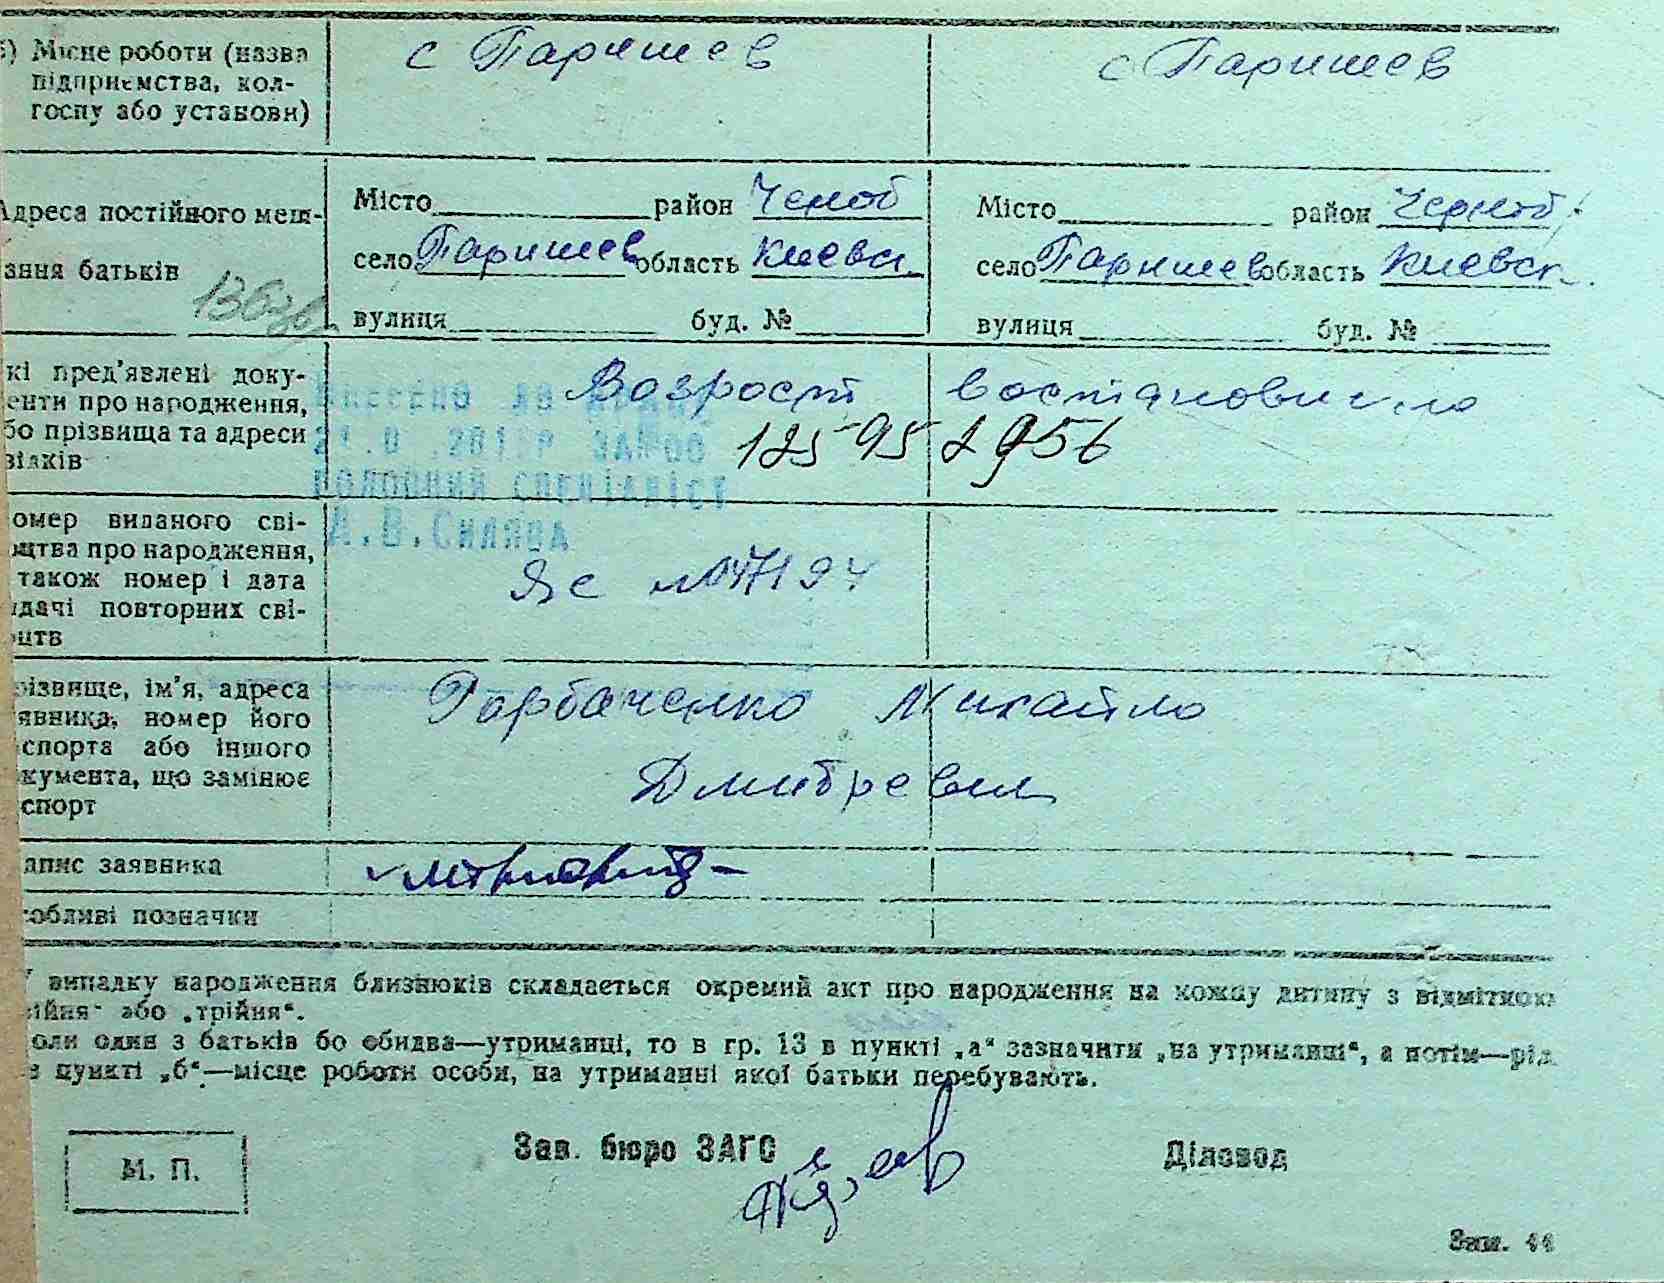 б) Місце роботи (назва підприємства, колгоспу або установи)
с Паришев
с Паришев
Адреса постійного меш-
ання батьків
Місто район Черноб
село Паришев область Киевск.
вулиця буд. №
Місто район Черноб.
село Паришев область Киевск.
вулиця буд. №
кі пред'явлені доку-
енти про народження,
бо прізвища та адреси
відків
Возрост востановило
125 95 2956
21.0 .201 р ЗАМ
ГОЛОВНИЙ СПЕЦІАЛІСТ
А.В.Силява
омер виданого сві-
оцтва про народження,
також номер і дата
идачі повторних сві-
оцтв
Яс № 047194
різвище, ім'я, адреса
явника, номер його
спорта або іншого
кумента, що замінює
спорт
Горбаченко Михайло
Дмитревич
дпис заявника
собливі позначки
У випадку народження близнюків складається окремий акт про народження на кожну дитину з відміткою
війня" або „трійня".
оли один з батьків бо обидва—утриманці, то в гр. 13 в пункті „а" зазначити „на утриманні", а потім—рід
в пункті „б"—місце роботи особи, на утриманні якої батьки перебувають.
М. П.
Зав. бюро ЗАГС
Діловод
Зам. 44